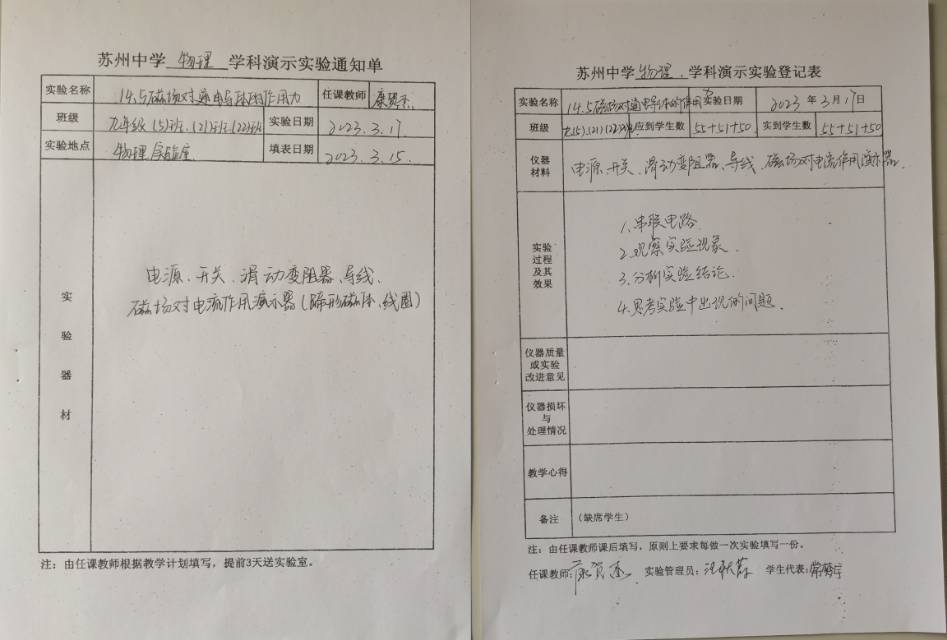 苏州中学 物理 学科演示实验通知单
实验名称 14.5磁场对通电导体的作用力 任课教师
班级 九年级(5)班、(21)班、(22)班 实验日期 2023.3.17
实验地点 物理实验室 填表日期 2023.3.15.
实验器材
电源、开关、滑动变阻器、导线、
磁场对电流作用演示器(蹄形磁体、线圈)
注：由任课教师根据教学计划填写，提前3天送实验室。
苏州中学 物理 学科演示实验登记表
实验名称 14.5磁场对通电导体的作用力 实验日期 2023年3月17日
班级 九(5)(21)(22)班 应到学生数 55+51+50 实到学生数 55+51+50
仪器材料 电源、开关、滑动变阻器、导线、磁场对电流作用演示器.
实验过程及其效果
1.串联电路.
2.观察实验现象.
3.分析实验结论.
4.思考实验中出现的问题.
仪器质量或实验改进意见
仪器损坏与处理情况
教学心得
备注 (缺席学生)
注：由任课教师课后填写，原则上要求每做一次实验填写一份。
任课教师: 实验管理员: 学生代表: